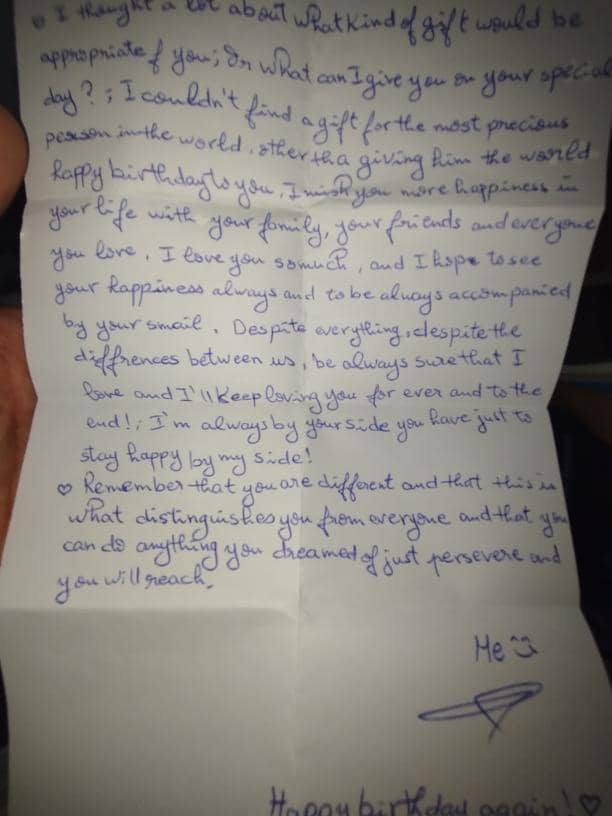 I thought a lot about what kind of gift would be
appropriate f you; Or what can I give you on your special
day?; I couldn't find a gift for the most precious
person in the world, other tha giving him the world
happy birthday to you, I wish you more happiness in
your life with your family, your friends and everyone
you love, I love you somuch, and I hope to see
your happiness always and to be always accompanied
by your smail. Despite everything, despite the
diffrences between us, be always sure that I
love and I'll Keep loving you for ever and to the
end!; I'm always by your side you have just to
stay happy by my side!
♡ Remember that you are different and that this is
what distinguishes you from everyone and that you
can do anything you dreamed of just persevere and
you will reach.
Me
Happy birthday again! ♡